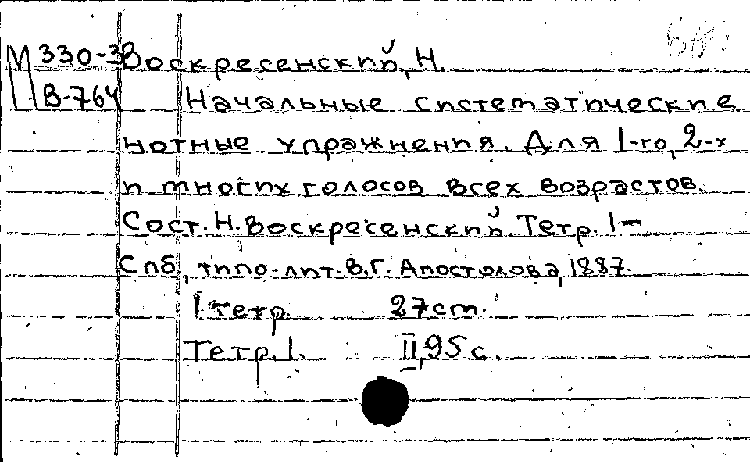 М 330-3 Воскресенский, Н.
В-764 Начальные систематические
нотные упражнения. Для 1-го, 2-х
и многих голосов всех возрастов.
Сост. Н. Воскресенский. Тетр. 1-
Спб, типо-лит. В.Г. Апостолова, 1887.
1 тетр. 27 cm.
Тетр. 1. II, 95 с.